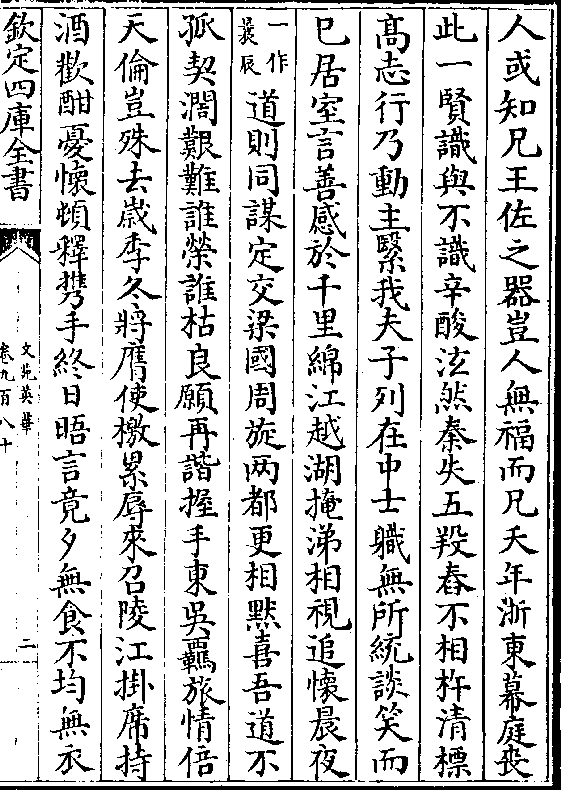 人或知兄王佐之器豈人無福而兄夭年浙東幕庭喪
此一賢識與不識辛酸泫然秦失五羖舂不相杵清標
髙志行乃動主緊我夫子列在中士職無所統談笑而
已居室言善感於千里綿江越湖掩涕相視追懐晨夜
一作曩辰道則同謀定交梁國周旋两都更相黙喜吾道不
孤契濶艱難誰榮誰枯良願再諧握手東吳羈旅情倍
天倫豈殊去嵗季冬將膺使檄累辱來召陵江掛席持
酒歡酣憂懐頓釋携手終日晤言竟夕無食不均無衣
欽定四庫全書
文苑英華
卷九百八十
二